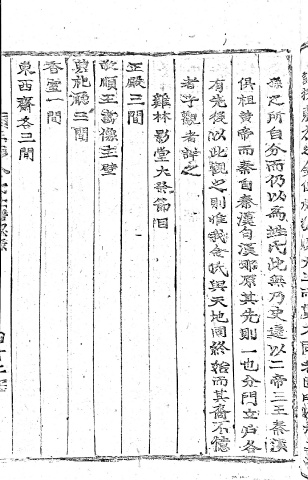 孫之所自分而仍以爲姓氏此無乃更遠以二帝三王秦漢
俱祖黃帝而秦自秦漢自漢那原其先則一也分門立戶各
有先後以此觀之則惟我金氏與天地同終始而其裔不億
者乎觀者詳之
雞林影堂大祭節目
正殿三間
敬順王當像主壁
三間
香室一間
東西齋各三間